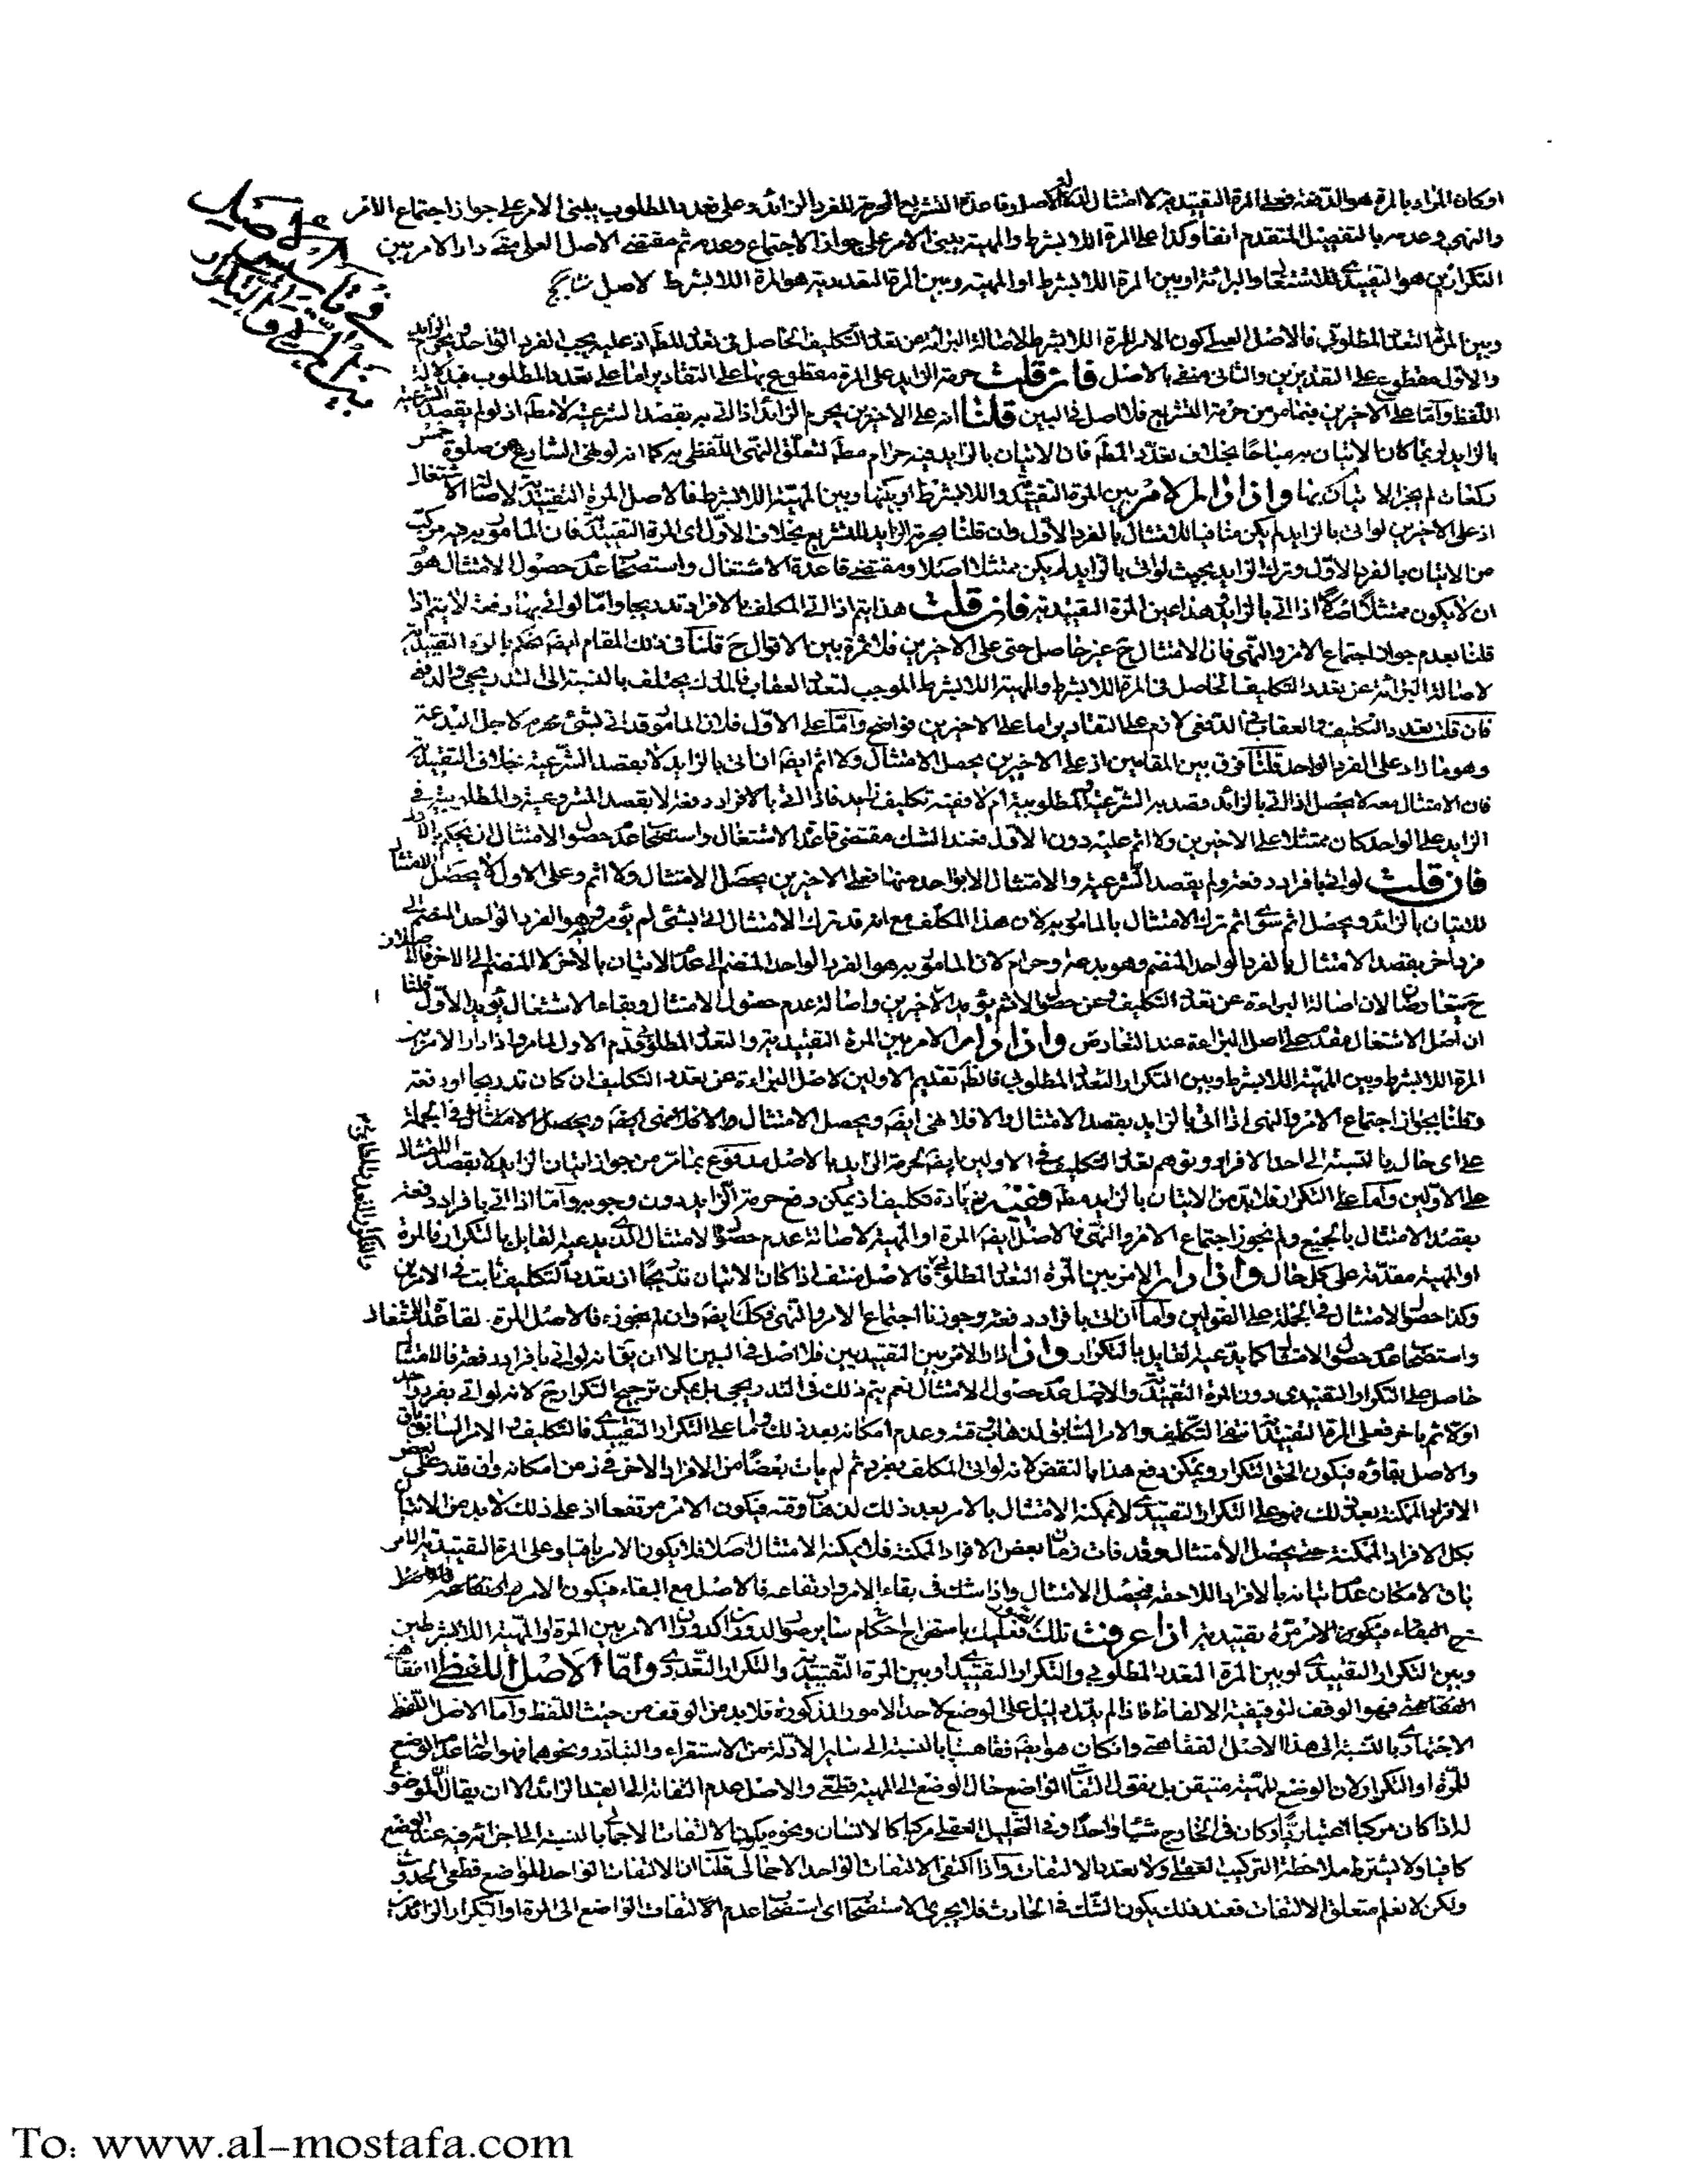 او كان المراد بالمرة هو الدفعة فعلى المرة التقييدية لا امتثال للاصل وقاعدة التشريع المحرم للفرد الزائد وعلى تعدد المطلوب يبنى الامر على جواز اجتماع الامر
والنهى وعدمه بالتفصيل المتقدم انفا وكذا على المرة اللابشرط والمهية يبنى الامر على جواز الاجتماع وعدمه ثم مقتضى الاصل العملى متى دار الامر بين
التكرارين هو التقييدى للاشتغال والبرائة او بين المرة اللابشرط او المهية وبين المرة التعددية هو المرة اللابشرط لاصل
وبين المرة التعدد المطلوبى فالاصل العملى كون الامر للمرة اللابشرط لاصالة البرائة عن تعدد التكليف الحاصل فى تعدد المط اذ عليه يجب الفرد الواحد ويحرم الزايد
والاول مقطوع على التقديرين والثانى منفى بالاصل فان قلت حرمة الزايد على المرة مقطوع بها على التقادير اما على تعدد المطلوب فبدلالة
اللفظ واما على الاخيرين فبما مر من حرمة التشريع فلا اصل فى البين قلنا انه على الاخيرين يحرم الزائد اذا اتى به بقصد الشرعية لا مط اذ لو لم يقصد الشرعية
بالزايد لربما كان الاتيان به مباحا بخلاف تعدد المط فان الاتيان بالزايد فيه حرام مط لتعلق النهى اللفظى به كما انه لو نهى الشارع عن صلوة خمس
ركعات لم يجز الاتيان بها واذا دار الامر بين المرة التقييدية واللابشرط او بينها وبين المهية اللابشرط فالاصل المرة التقييدية لاصالة الاشتغال
اذ على الاخيرين لو اتى بالزايد لم يكن منافيا للامتثال بالفرد الاول وان قلنا بحرمة الزايد للتشريع بخلاف الاول اى المرة التقييدية فان المامور به مركب
من الاتيان بالفرد الاول وترك الزايد بحيث لو اتى بالزايد لم يكن ممتثلا اصلا ومقتضى قاعدة الاشتغال واستصحاب عدم حصول الامتثال هو
ان لا يكون ممتثلا اصلا اذا اتى بالزايد وهذا عين المرة التقييدية فان قلت هذا يتم اذا اتى المكلف بالافراد تدريجا واما لو اتى بها دفعة لا يتم اذا
قلنا بعدم جواز اجتماع الامر والنهى فان الامتثال ح غير حاصل حتى على الاخيرين فلا ثمرة بين الاقوال ح قلنا فى ذلك المقام ايضا نحكم بالمرة التقييدية
لاصالة البرائة عن تعدد التكليف الحاصل فى المرة اللابشرط والمهية اللابشرط الموجب لتعدد العقاب فالمدرك يختلف بالنسبة الى التدريجى والدفعى
فان قلت تعدد التكليف والعقاب فى الدفعى لازم على التقادير اما على الاخيرين فواضح واما على الاول فلان المامور قد اتى بشئ محرم لاجل البدعة
وهو ما زاد على الفرد الواحد قلنا فرق بين المقامين اذ على الاخيرين يحصل الامتثال ولا اثم ايضا ان اتى بالزايد لا بقصد الشرعية بخلاف التقييدية
فان الامتثال معه لا يحصل اذا اتى بالزائد وقصد به الشرعية والمطلوبية ام لا ففيه تكليف زايد فاذا اتى بالافراد دفعة لا بقصد المشروعية والمطلوبية فى
الزايد على الواحد كان ممتثلا على الاخيرين ولا اثم عليه دون الاول فعند الشك مقتضى قاعدة الاشتغال واستصحاب عدم حصول الامتثال ان يحكم بالاول
فان قلت لو اتى بافراد دفعة ولم يقصد الشرعية والامتثال الا بواحد منها فعلى الاخيرين يحصل الامتثال ولا اثم وعلى الاول لا يحصل الامتثال
للاتيان بالزائد ويحصل اثم سوى اثم ترك الامتثال بالمامور به لان هذا المكلف مع انه قد ترك الامتثال اتى بشئ لم يؤمر به وهو الفرد الواحد المنضم الى
فرد اخر بقصد الامتثال بالفرد الواحد المنضم وهو بدعة وحرام لان المامور به هو الفرد الواحد المنضم الى عدم الاتيان بالاخر لا المنضم الى الاخر فالاصلان
ح متعارضان لان اصالة البراءة عن تعدد التكليف وعن حصول الاثم يؤيد الاخيرين واصالة عدم حصول الامتثال وبقاء الاشتغال يؤيد الاول قلنا
ان اصل الاشتغال مقدم على اصل البراءة عند التعارض واذا دار الامر بين المرة التقييدية والتعدد المطلوبى قدم الاول لما مر واذا دار الامر بين
المرة اللابشرط وبين المهية اللابشرط وبين التكرار التعدد المطلوبى فالظ تقديم الاولين لاصل البراءة عن تعدد التكليف ان كان تدريجا او دفعة
وقلنا بجواز اجتماع الامر والنهى اذا اتى بالزايد بقصد الامتثال والا فلا نهى ايضا ويحصل الامتثال والا فلا نهى ايضا ويحصل الامتثال فى الجملة
على اى حال بالنسبة الى احد الافراد وتوهم تعدد التكليف فى الاولين ايضا لحرمة الزايد بالاصل مدفوع بما مر من جواز اتيان الزايد لا بقصد الامتثال
على الاولين واما على التكرار فلا بد من الاتيان بالزايد مط ففيه زيادة تكليف اذ يمكن دفع حرمة الزايد دون وجوبه واما اذا اتى بافراد دفعة
بقصد الامتثال بالجميع ولم نجوز اجتماع الامر والنهى فالاصل ايضا المرة او المهية لاصالة عدم حصول الامتثال الذى يدعيه القايل بالتكرار فالمرة
او المهية مقدمة على كل حال واذا دار الامر بين المرة التعدد المطلوبى فالاصل منتف اذا كان الاتيان تدريجا اذ تعدد التكليف ثابت فى الامرين
وكذا حصول الامتثال فى الجملة على القولين واما ان اتى بافراد دفعة وجوزنا اجتماع الامر والنهى فكك ايضا وان لم نجوزه فالاصل المرة لقاعدة الاشتغال
واستصحاب عدم حصول الامتثال كما يدعيه القايل بالتكرار واذا دار الامر بين التقييديين فلا اصل فى البين الا ان يق انه لو اتى بافراد دفعة فالامتثال
حاصل على التكرار التقييدى دون المرة التقييدية والاصل عدم حصول الامتثال نعم يتم ذلك فى التدريجى بل يمكن ترجيح التكرار ح لانه لو اتى بفرد واحد
اولا ثم باخر فعلى المرة التقييدية انتفى التكليف والامر السابق لذهاب وقته وعدم امكانه بعد ذلك واما على التكرار التقييدى فالتكليف والامر السابق باق
والاصل بقاؤه فيكون الحق التكرار ويمكن دفع هذا بالنقض لانه لو اتى المكلف بفرد ثم لم يات بعضا من الافراد الاخر فى زمن امكانه وان قدر على بعض
الافراد الممكنة بعد ذلك فهو على التكرار التقييدى لا يمكنه الامتثال بالامر بعد ذلك لذهاب وقته فيكون الامر مرتفعا اذ على ذلك لا بد من الاتيان
بكل الافراد الممكنة حتى يحصل الامتثال وقد فات زمان بعض الافراد الممكنة فلا يمكنه الامتثال اصلا فلا يكون الامر باقيا وعلى المرة التقييدية الامر
باق لامكان عدم اتيانه بالافراد اللاحقة فيحصل الامتثال واذا شك فى بقاء الامر وارتفاعه فالاصل مع البقاء فيكون الامر
البقاء فيكون الامر مرة تقييدية اذا عرفت تلك فعليك باستخراج احكام ساير صور الدوران كدوران الامر بين المرة او المهية اللابشرطين
وبين التكرار التقييدى او بين المرة التعدد المطلوبى والتكرار التقييدى او بين المرة التقييدية والتكرار التعددى واما الاصل اللفظى
الفقاهتى فهو الوقف لتوقيفية الالفاظ فاذا لم يدل دليل على الوضع لاحد الامور المذكورة فلا بد من الوقف من حيث اللفظ واما الاصل اللفظى
الاجتهادى بالنسبة الى هذا الاصل الفقاهتى وان كان هو ايضا فقاهتيا بالنسبة الى ساير الادلة من الاستقراء والتبادر ونحوهما فهو اصالة عدم الوضع
للمرة او التكرار لان الوضع للمهية متيقن بل نقول التفات الواضع حال الوضع الى المهية قطعى والاصل عدم التفاته الى القيد الزائد الا ان يقال ان الموضوع
له اذا كان مركبا اعتباريا وكان فى الخارج شيئا واحدا وفى التحليل العقلى مركبا كالانسان ونحوه يكون الالتفات الاجمالى بالنسبة الى اجزائه فيه عند الوضع
كافيا ولا يشترط ملاحظة التركيب العقلى ولا تعدد الالتفات واذا اكتفى الالتفات الواحد الاجمالى قلنا ان الالتفات الواحد للواضع قطعى الحدوث
ولكن لا نعلم متعلق الالتفات فعند ذلك يكون الشك فى الحادث فلا يجرى الاستصحاب اى استصحاب عدم الالتفات الواضع الى المرة او التكرار الزائد
To: www.al-mostafa.com